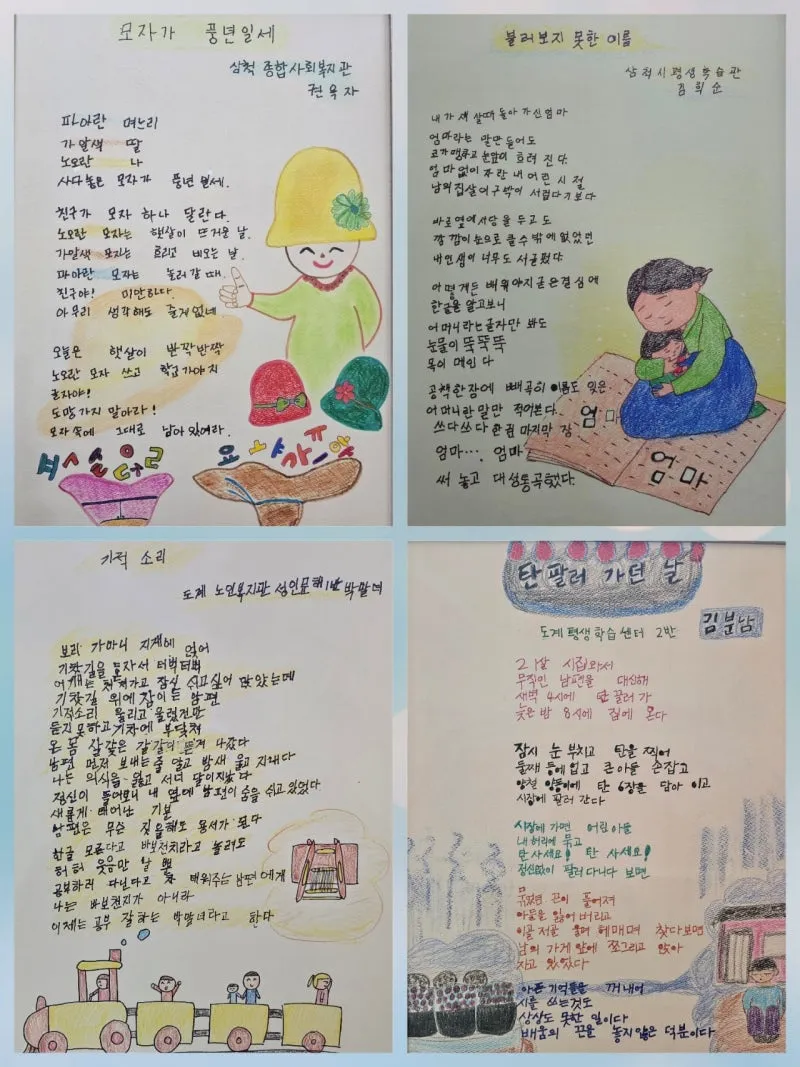 모자가 풍년일세
삼척 종합사회복지관
권옥자
파아란 며느리
가알색 딸
노오란 나
사다놓은 모자가 풍년 일세.
친구가 모자 하나 달란다.
노오란 모자는 햇살이 뜨거운 날.
가알색 모자는 흐리고 비오는 날.
파아란 모자는 놀러갈 때.
친구야! 미안하다.
아무리 생각해도 줄게 없네
오늘은 햇살이 반짝반짝
노오란 모자 쓰고 학교가야지
모자야!
도망가지 말아라!
모자 속에 그대로 남아 있어라.
불러보지 못한 이름
삼척시평생학습관
김희순
내가 세 살때 돌아 가신 엄마
엄마라는 말만 들어도
코가 맹쿠고 눈앞이 흐려 진다
엄마 없이 자란 내 어린 시절
남의 집살이 구박이 서럽다기보다
바로 옆에 서당을 두고도
깡깜이 눈으로 클 수 밖에 없었던
내 인생이 너무도 서글펐다
어떻게든 배워야지 굳은 결심에
한글을 알고보니
어머니라는 글자만 봐도
눈물이 뚝뚝뚝
목이 메인 다
공책 한 장에 빼곡히 이름도 잊은
어머니란 말만 적어본다
쓰다 쓰다 마지막 장
엄마.... 엄마
써 놓고 대성통곡했다
엄마
엄마
기적 소리
도계 노인복지관 성인문해1반 박말녀
보리 가마니 지게에 얹어
기찻길을 혼자서 터벅터벅
어깨는 쳐가고 잠시 쉬고싶어 앉았는데
기찻길 위에 잠이든 남편
기적소리 울리고 울렸건만
듣지 못하고 기차에 부딪쳐
온 몸 살갗은 갈갈이 뜯겨 나갔다
남편 먼저 보내는줄 알고 밤새 울고 지새다
나는 의식을 잃고 서너 달이지났다
정신이 들어보니 내 옆에 남편이 숨을 쉬고 있었다
새롭게 태어난 기분
남편은 무슨 짓을해도 용서가 된다
한글 모른다고 바보천치라고 놀려도
허허 웃음만 날 뿐
공부하러 다닌다고 책 태워주는 남편에게
나는 바보천지가 아니라
이제는 공부 잘 하는 박말녀라고 한다
탄 팔러 가던 날
김분남
도계평생학습센터 2반
21살 시집와서
무직인 남편을 대신해
새벽 4시에 탄 끌러 가
늦은 밤 8시에 집에 온다
잠시 눈 부치고 탄을 찍어
둘째 등에 업고 큰아들 손잡고
양철 양동이에 탄 6장을 담아 이고
시장에 팔러 간다
시장에 가면 어린아들
내 허리에 묶고
탄 사세요! 탄 사세요!
정신없이 팔러 다니다 보면
묶었던 끈이 풀어져
아들을 잃어 버리고
이골 저골 울며 헤매며 찾다보면
남의 가게 앞에 쪼그리고 앉아
자고 있었다
아픈 기억들을 꺼내어
시를 쓰는것도
상상도 못한 일이다
배움의 끈을 놓지 않은 덕분이다